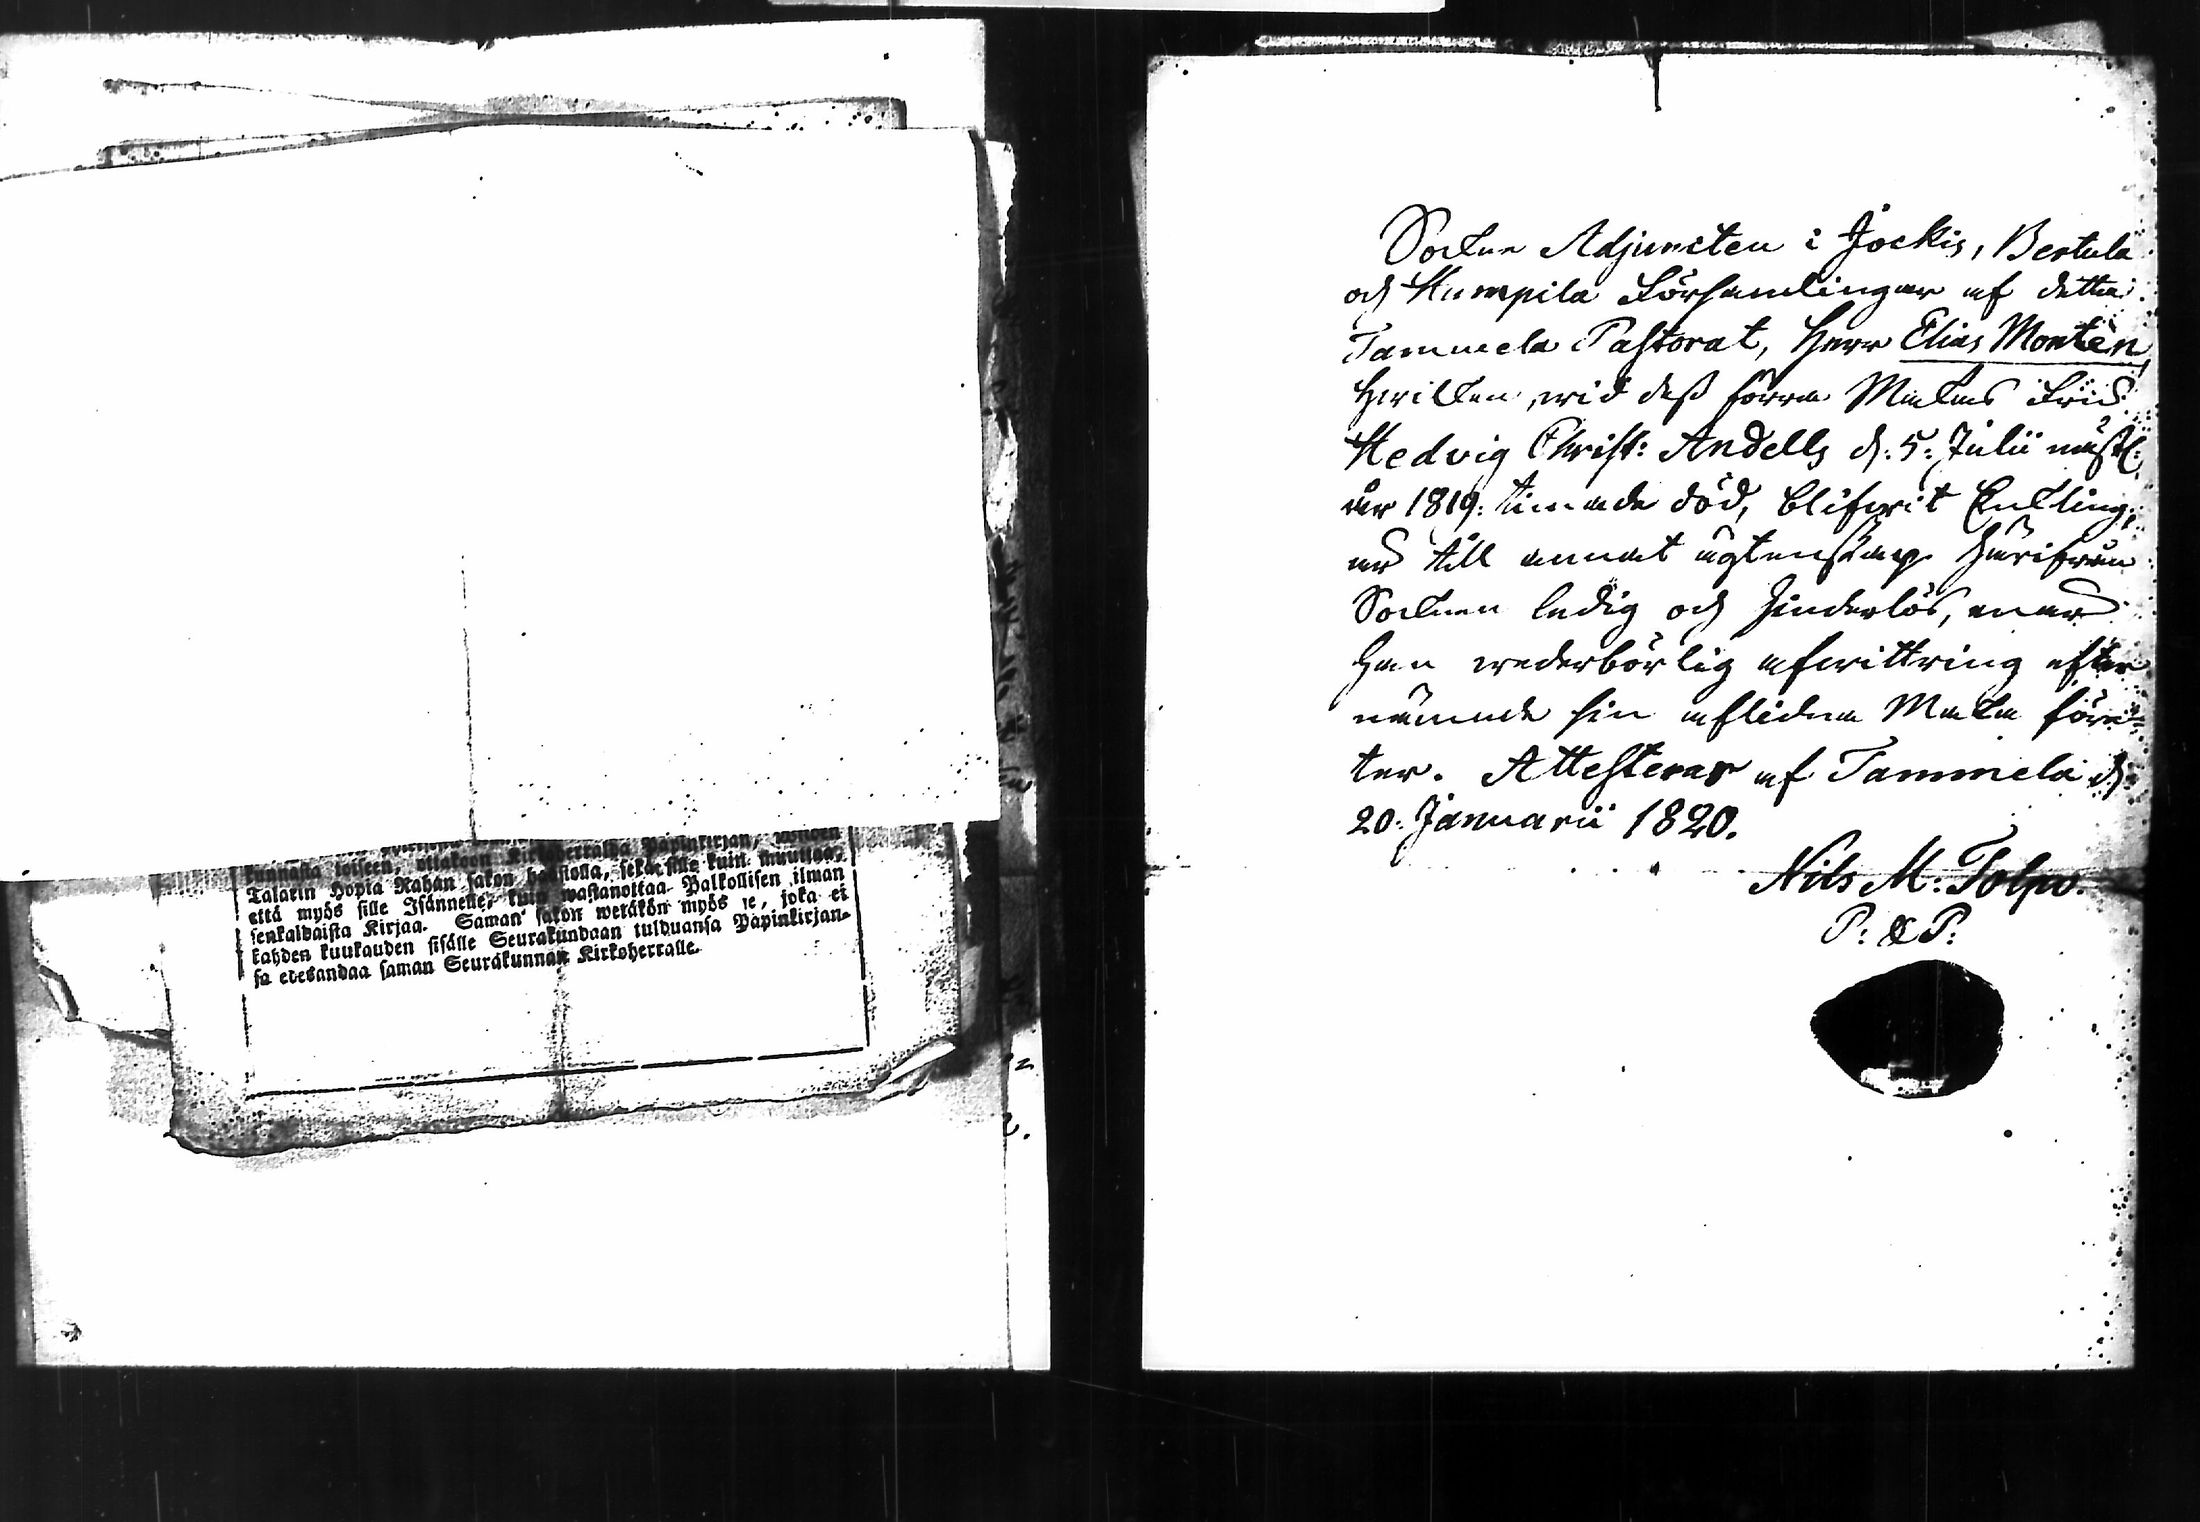 kunnasta toiseen, ottakoon Kirkoherralda Papinkirjan,
Talarin Hopia Rahan sakon haastolla, sekä sille kuin muuttaa,
että myös sille Isännelle, kuin wastanottaa Palkollisen ilman
senkaldaista Kirjaa. Saman sakon wetäkön myös se, joka ei
kahden kuukauden sisälle Seurakundaan tulduansa Papinkirjan-
sa edesandaa saman Seurakunnan Kirkoherralle.
Sockne Adjuncten i Jockis, Bertula
och Humpila Församlingar af detta
Tammela Pastorat, Herr Elias Montén,
hwilken, wid dess förra Makas Frid.
Hedvig Christ: Andells d. 5. Julii nästl:
år 1819. timade död, blifwit Enkling,
är till annat ägtenskap härifrån
Socknen ledig och hinderlös, enär
han wederbörlig afwittring efter
nämnde sin aflidna Maka före-
ter. Attesteras af Tammela d.
20. Januarii 1820.
Nils M: Tolpo.
P: & P: